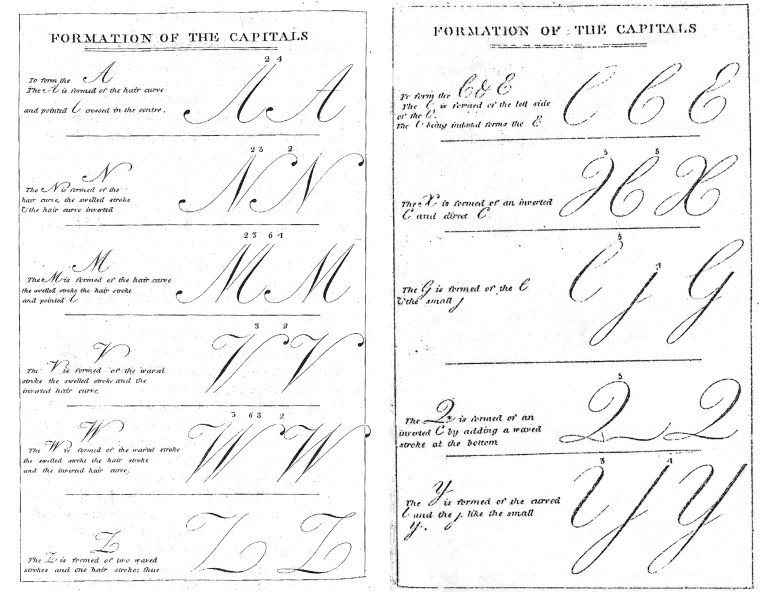 FORMATION OF THE CAPITALS
2 4
To form the A
The A is formed of the hair curve
and pointed l crossed in the centre.
A A
2 3 2
N
The N is formed of the
hair curve, the swelled stroke
& the hair curve inverted
N N
2 3 6 4
M
The M is formed of the hair curve
the swelled stroke the hair stroke
and pointed l
M M
3 2
V
The V is formed of the waved
stroke the swelled stroke and the
inverted hair curve.
V V
3 6 3 2
W
The W is formed of the waved stroke
the swelled stroke the hair stroke
and the inverted hair curve.
W W
Z
The Z is formed of two waved
strokes and one hair stroke: thus
Z Z
FORMATION OF THE CAPITALS
To form the C & E
The C is formed of the left side
of the O.
The C being indented forms the E
C C E
5 5
The X is formed of an inverted
C and direct C.
X X
5 4
The G is formed of the C
& the small j
C j G
5
The Q is formed of an
inverted C by adding a waved
stroke at the bottom
Q Q
3 4
The Y is formed of the curved
l and the j like the small
y.
Y Y